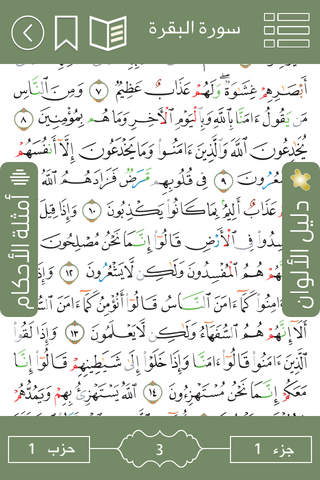 سورة البقرة
أَبْصَٰرِهِمْ غِشَٰوَةٌۖ وَلَهُمْ عَذَابٌ عَظِيمٌ ٧ وَمِنَ ٱلنَّاسِ
مَن يَقُولُ ءَامَنَّا بِٱللَّهِ وَبِٱلْيَوْمِ ٱلْأَخِرِ وَمَا هُم بِمُؤْمِنِينَ ٨
يُخَٰدِعُونَ ٱللَّهَ وَٱلَّذِينَ ءَامَنُوا۟ وَمَا يَخْدَعُونَ إِلَّآ أَنفُسَهُمْ
٩ فِى قُلُوبِهِم مَّرَضٌ فَزَادَهُمُ ٱللَّهُ
عَذَابٌ أَلِيمٌۢ بِمَا كَانُوا۟ يَكْذِبُونَ ١٠ وَإِذَا قِيلَ
فِى ٱلْأَرْضِ قَالُوٓا۟ إِنَّمَا نَحْنُ مُصْلِحُونَ
هُمُ ٱلْمُفْسِدُونَ وَلَٰكِن لَّا يَشْعُرُونَ ١٢
ءَامَنَ ٱلنَّاسُ قَالُوٓا۟ أَنُؤْمِنُ كَمَآ ءَامَنَ
إِنَّهُمْ هُمُ ٱلسُّفَهَآءُ وَلَٰكِن لَّا يَعْلَمُونَ ١٣ وَإِذَا لَقُوا۟
ٱلَّذِينَ ءَامَنُوا۟ قَالُوٓا۟ ءَامَنَّا وَإِذَا خَلَوْا۟ إِلَىٰ شَيَٰطِينِهِمْ قَالُوٓا۟ إِنَّا
مَعَكُمْ إِنَّمَا نَحْنُ مُسْتَهْزِءُونَ ١٤ ٱللَّهُ يَسْتَهْزِئُ بِهِمْ وَيَمُدُّهُمْ
دليل الألوان
أمثلة الأحكام
جزء 1
3
حزب 1